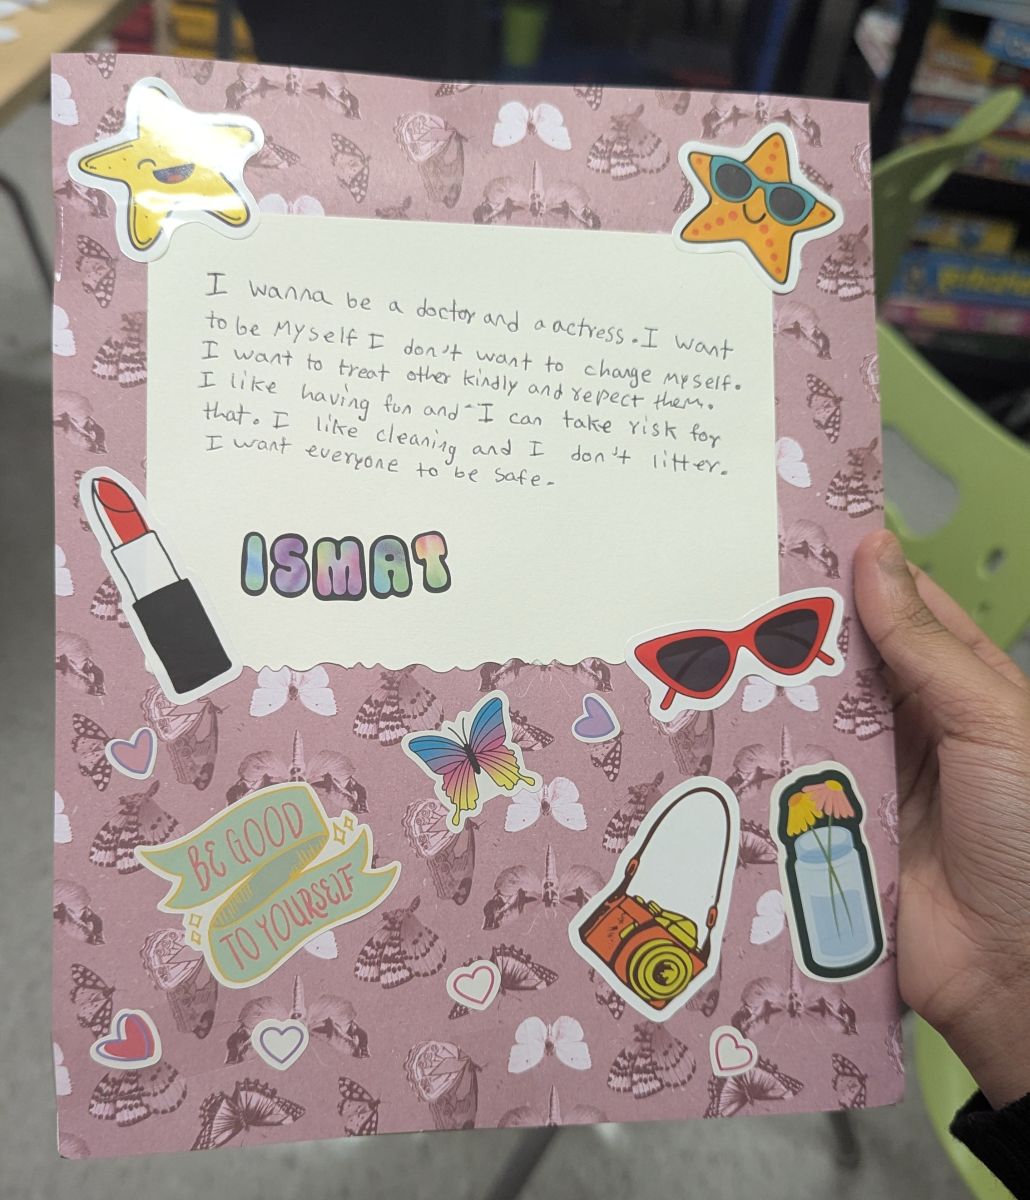 I wanna be a doctor and a actress. I want
to be Myself I don't want to change Myself.
I want to treat other kindly and repect them.
I like having fun and I can take risk for
that. I like cleaning and I don't litter.
I want everyone to be safe.
ISMAT
BE GOOD
TO YOURSELF